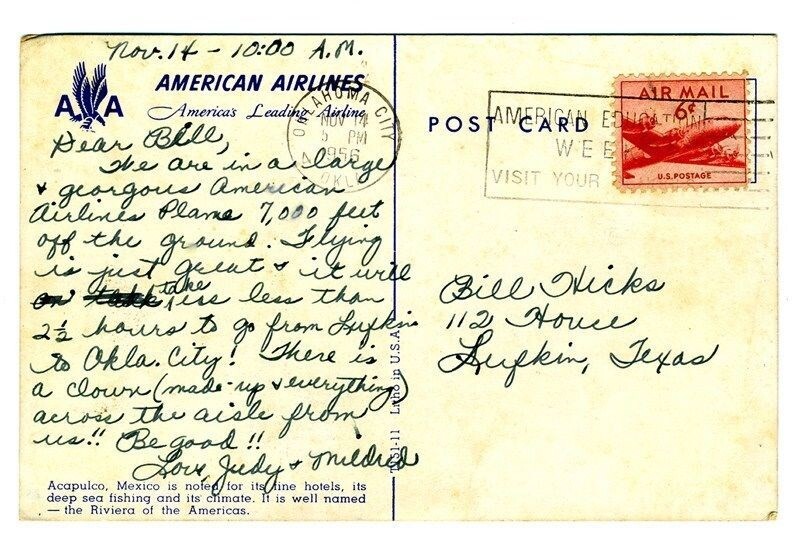 Nov. 14 - 10:00 A.M.
AMERICAN AIRLINES
A A
America's Leading Airline
Dear Bill,
We are in a large
& georgous American
Airlines Plane 7,000 feet
off the ground. Flying
is just great & it will
take us less than
2½ hours to go from Lufkin
to Okla. City! There is
a clown (made-up & everything)
across the aisle from
us!! Be good!!
Love, Judy & Mildred
Acapulco, Mexico is noted for its fine hotels, its
deep sea fishing and its climate. It is well named
— the Riviera of the Americas.
Litho in U.S.A.
OKLAHOMA CITY
NOV 14
5 PM
1956
OKLA.
POST CARD
AMERICAN EDUCATION
WEE
VISIT YOUR
AIR MAIL
6¢
U.S. POSTAGE
Bill Hicks
112 House
Lufkin, Texas